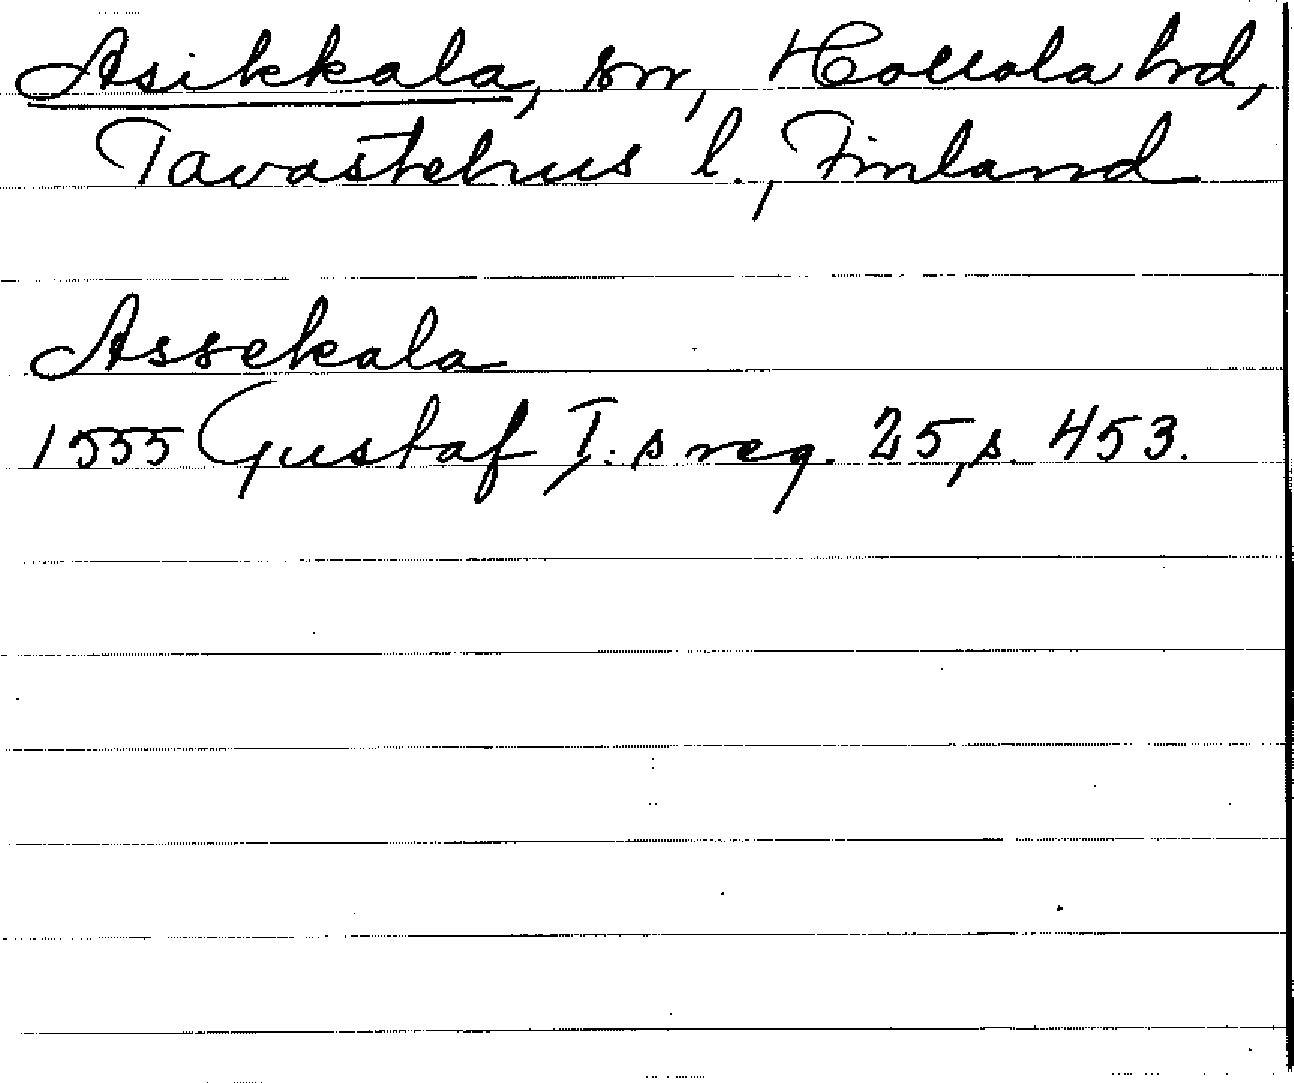 Asikkala, sn, Hollola hd,
Tavastehus l., Finland
Assekala
1555 Gustaf I:s reg. 25, s. 453.